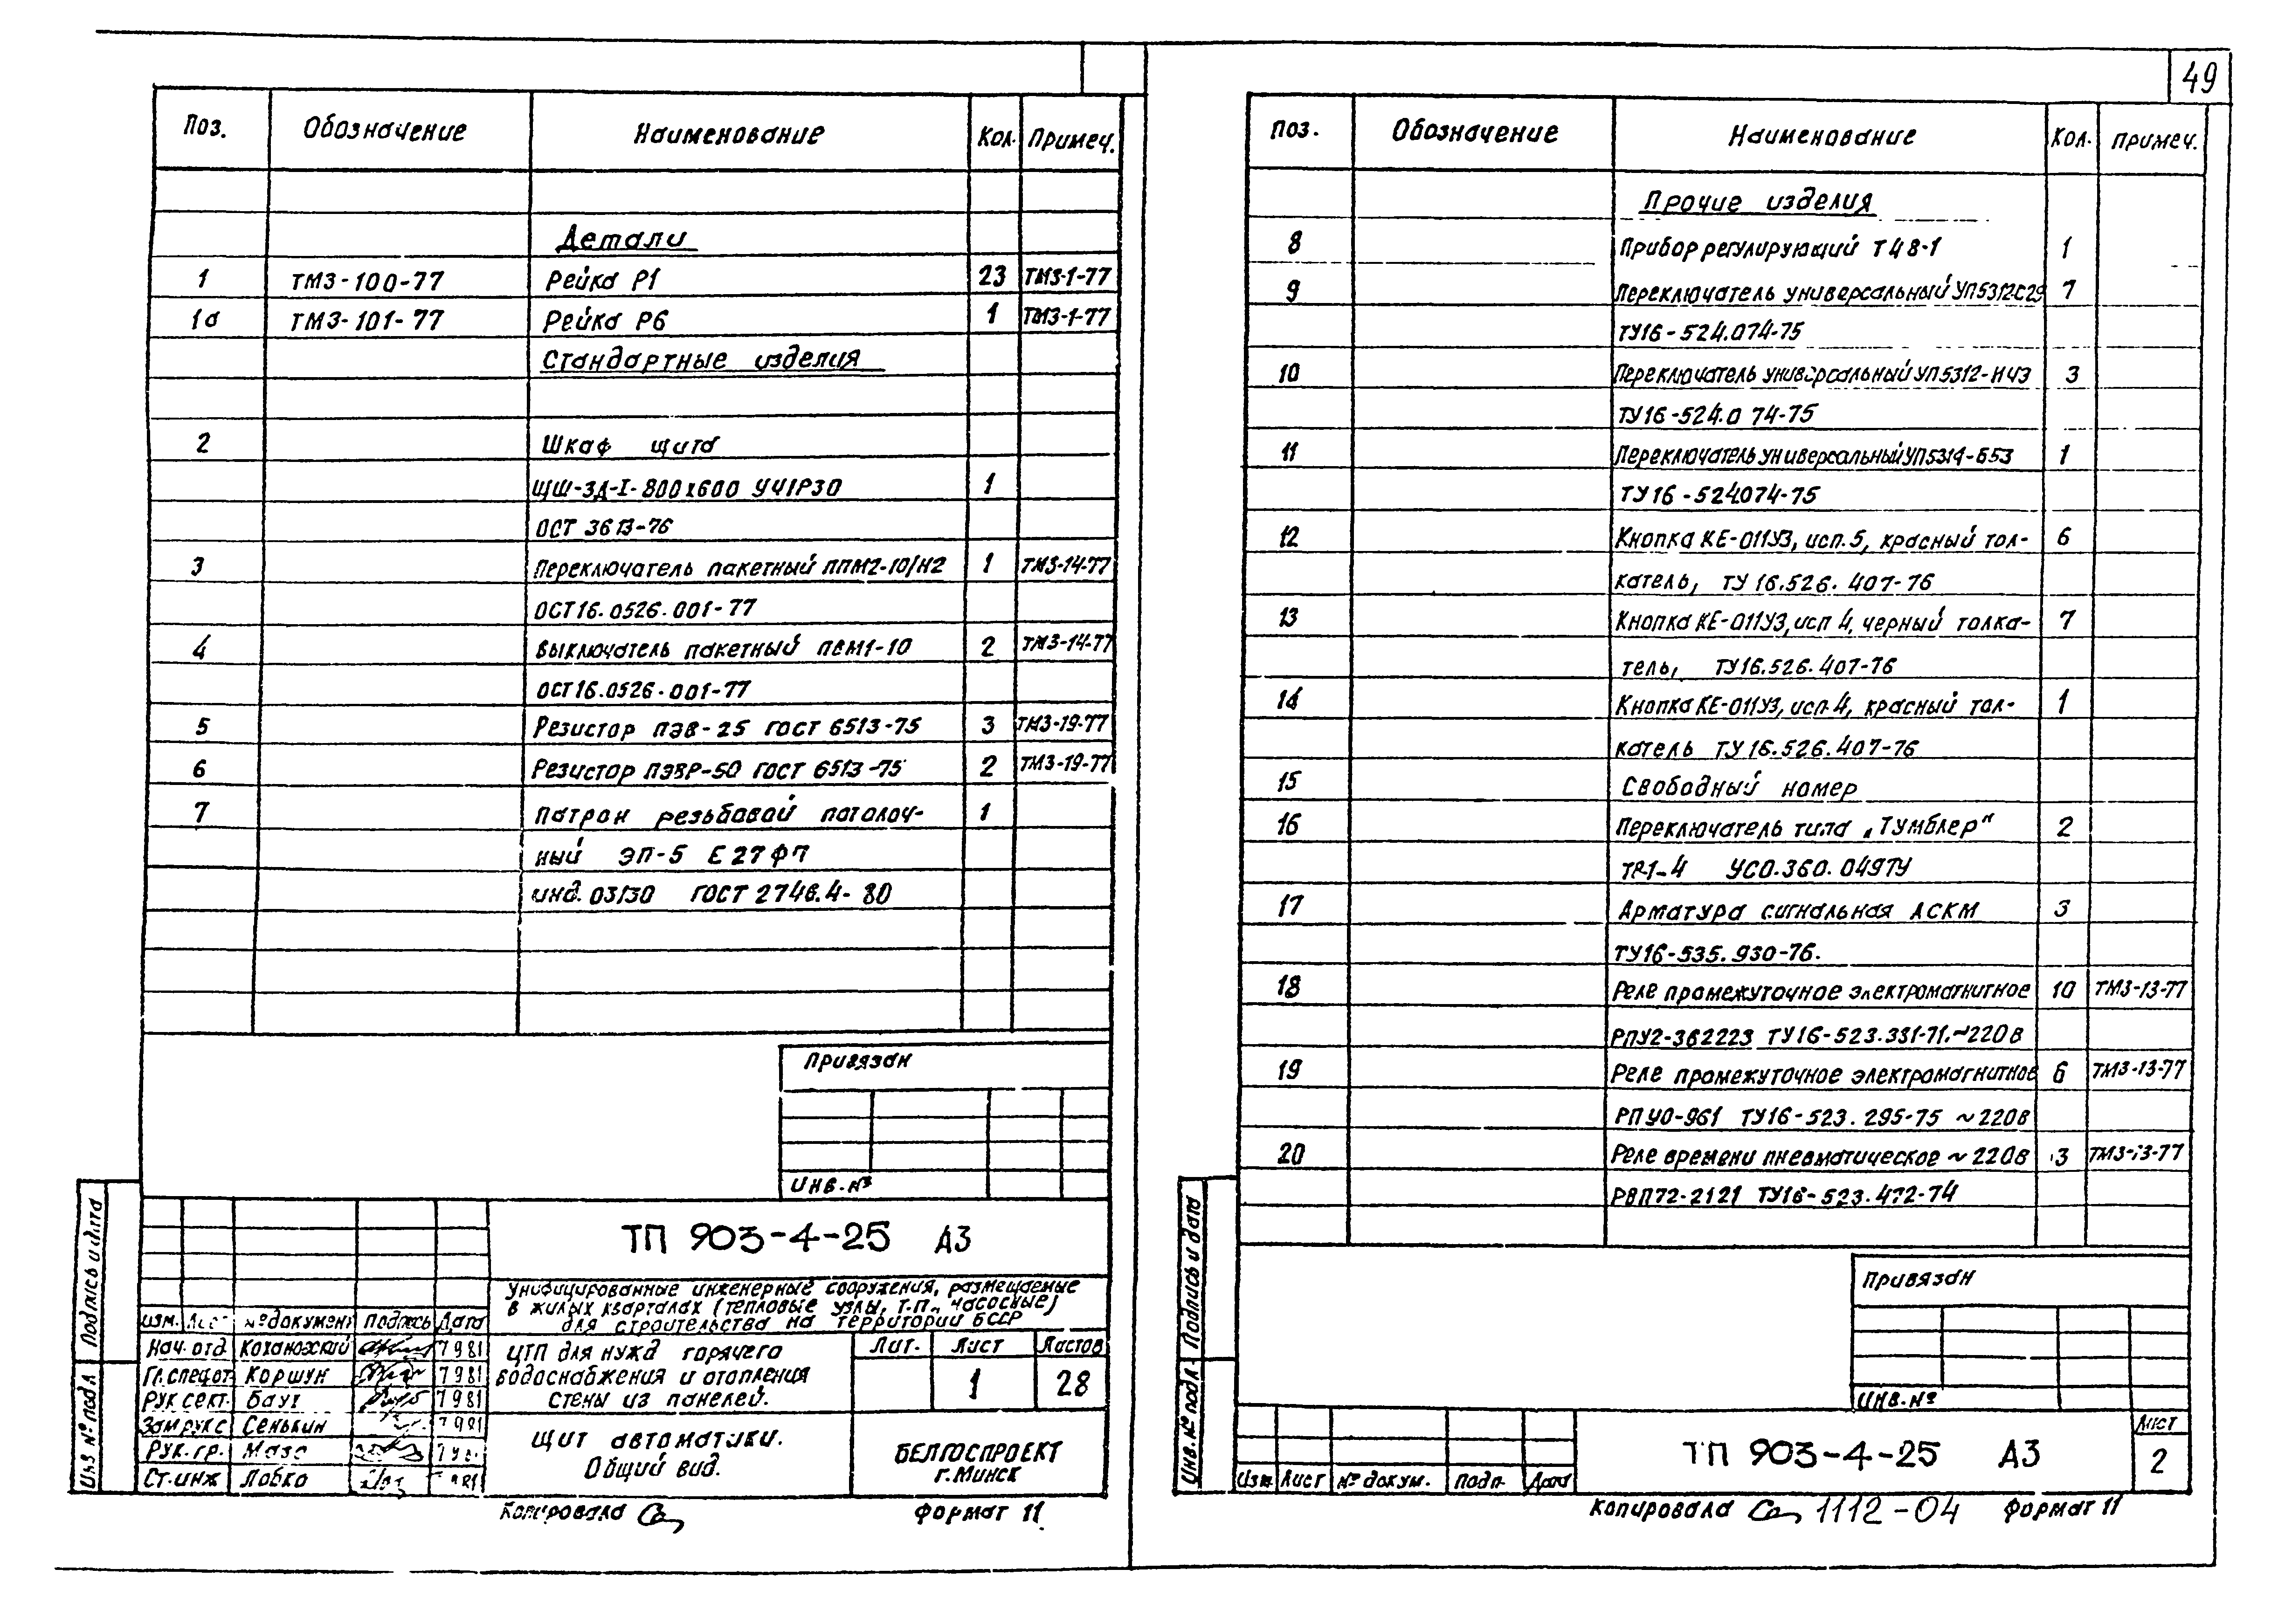 49
Поз. Обозначение Наименование Кол. Примеч.
Детали
1 ТМ3-100-77 Рейка Р1 23 ТМ3-1-77
1а ТМ3-101-77 Рейка Р6 1 ТМ3-1-77
Стандартные изделия
2 Шкаф щита
ЩШ-ЗД-I-800х600 УЧIР30 1
ОСТ 3613-76
3 Переключатель пакетный ППМ2-10/Н2 1 ТМ3-14-77
ОСТ16.0526.001-77
4 Выключатель пакетный ПВМ1-10 2 ТМ3-14-77
ОСТ16.0526.001-77
5 Резистор ПЭВ-25 ГОСТ 6513-75 3 ТМ3-19-77
6 Резистор ПЭВР-50 ГОСТ 6513-75 2 ТМ3-19-77
7 Патрон резьбовой потолоч- 1
ный ЭП-5 Е27ФП
инд. 03/30 ГОСТ 2746.4-80
Привязан
ИНВ.№
ТП 903-4-25 А3
Унифицированные инженерные сооружения, размещаемые
в жилых кварталах (тепловые узлы, т.п., насосные)
для строительства на территории БССР
Изм. Лист № документ Подпись Дата
Нач. отд. Кохановский 7 981
Гл.спец.от Коршун 7 981
Рук сект. Баут 7 981
Зам рук с Сенькин 7 981
Рук. гр. Мазо
Ст.инж Лобко 981
ЦТП для нужд горячего
водоснабжения и отопления
Стены из панелей.
Лит. Лист Листов
1 28
Щит автоматики.
Общий вид.
БЕЛГОСПРОЕКТ
г. Минск
Подпись и дата
Инв № подл
Копировала Формат 11
Поз. Обозначение Наименование Кол. Примеч.
Прочие изделия
8 Прибор регулирующий Т48-1 1
9 Переключатель универсальный УП5312-С29 7
ТУ16-524.074-75
10 Переключатель универсальный УП5312-НЧЭ 3
ТУ16-524.074-75
11 Переключатель универсальный УП5314-Б53 1
ТУ16-524.074-75
12 Кнопка КЕ-011У3, исп.5, красный тол- 6
катель, ТУ 16.526.407-76
13 Кнопка КЕ-011У3, исп 4, черный толка- 7
тель, ТУ16.526.407-76
14 Кнопка КЕ-011У3, исп.4, красный тол- 1
катель ТУ 16.526.407-76
15 Свободный номер
16 Переключатель типа „Тумблер“ 2
ТР1-4 УСО.360.049ТУ
17 Арматура сигнальная АСКМ 3
ТУ16-535.930-76.
18 Реле промежуточное электромагнитное 10 ТМ3-13-77
РПУ2-362223 ТУ16-523.331-71.~220в
19 Реле промежуточное электромагнитное 6 ТМ3-13-77
РПУ0-961 ТУ16-523.295-75 ~220в
20 Реле времени пневматическое ~220в 3 ТМ3-13-77
РВП72-2121 ТУ16-523.472-74
Привязан
ИНВ.№
ТП 903-4-25 А3
Лист
2
Изм Лист № докум. Подп. Дата
Подпись и дата
Инв.№ подл.
Копировала 1112-04 Формат 11